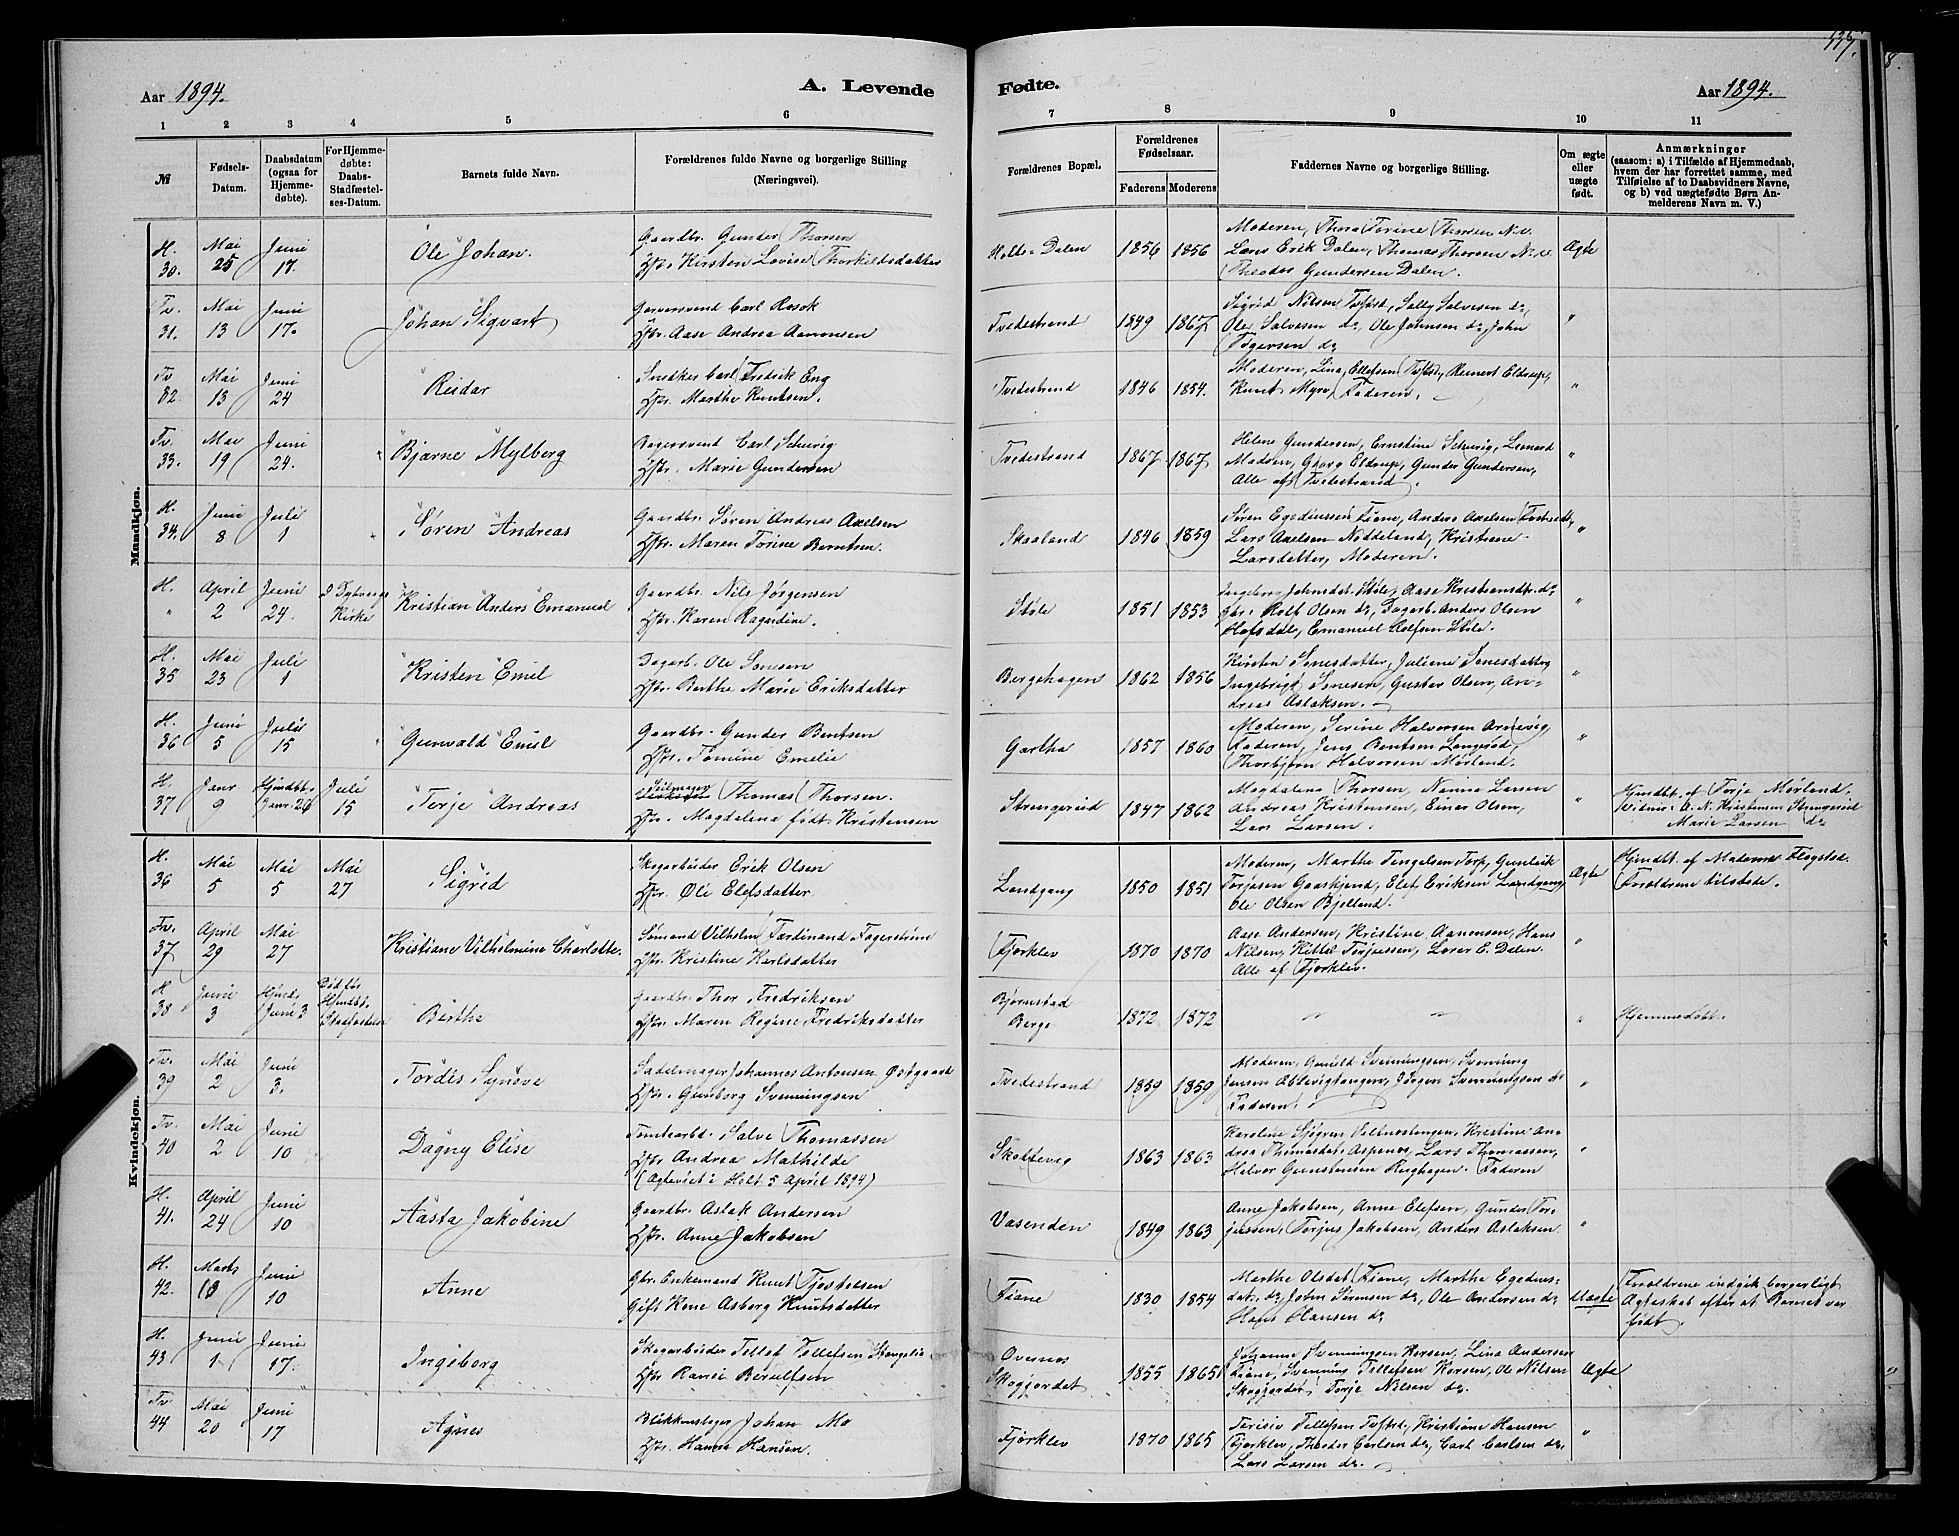 Aar 1894.
A. Levende
Fødte.
Aar 1894.
1 2 3 4 5 6
7 8 9 10 11
№
Fødsels-Datum.
Daabsdatum (ogsaa for Hjemme-døbte).
For Hjemme-døbte: Daabs-Stadfæstel-ses-Datum.
Barnets fulde Navn.
Forældrenes fulde Navne og borgerlige Stilling (Næringsvei).
Forældrenes Bopæl.
Forældrenes Fødselsaar.
Faderens Moderens
Faddernes Navne og borgerlige Stilling.
Om ægte eller uægte født.
Anmærkninger
(saasom: a) i Tilfælde af Hjemmedaab, hvem der har forrettet samme, med Tilføielse af to Daabsvidners Navne, og b) ved uægtefødte Børn Anmelderens Navn m. V.)
Mandkjøn.
H. 30. Mai 25 Juni 17. Ole Johan. Gaardbr. Gunder Thorsen
Hstr. Kirsten Lovise Thorkildsdatter
Holte-Dalen 1856 1856
Moderen, Thora Torine Thorsen
Lars Erik Dalen, Thomas Thorsen
Theodor Gundersen Dalen.
Ægte
Tv. 31. Mai 13 Juni 17. Johan Sigvart Garversvend Carl Rosok
Hstr. Aase Andrea Aanonsen
Tvedestrand 1849 1867
Sigrid Nilsen Tvdstd, Sally Salvesen do,
Ole Salvesen do, Ole Johnsen do, John
Tøgersen do
"
Tv 32. Mai 13 Juni 24 Reidar Snedker Carl Fredrik Eng
Hstr. Marthe Knutsen.
Tvedestrand 1846 1854.
Moderen, Lina Ellefsen Tvdstd, Reinert Eldrup,
Knut Myre, Faderen.
"
Tv. 33. Mai 19 Juni 24. Bjarne Mylberg Bagersvend Carl Schurig
Hstr. Marie Gundersen
Tvedestrand 1867 1867
Helene Gundersen, Ernstine Schurig, Leonard
Madsen, Georg Eldrup, Gunder Gundersen,
Alle af Tvedestrand.
"
H. 34. Juni 8 Juli 1 Søren Andreas Gaardbr. Søren Andreas Axelsen
Hstr. Maren Torine Berntsen.
Skaaland 1846 1859
Søren Egediussen Fiane, Anders Axelsen
Lars Axelsen Nøddeland, Kristiane
Larsdatter, Moderen.
"
H. " April 2 Juni 24. I Dybvaags Kirke Kristian Anders Emanuel Gaardbr. Nils Jørgensen
Hstr. Karen Ragndine.
Støle 1851 1853
Ingeborg Johnsdat. Støle, Aase Kristensdtr. do
Gbr. Rolf Olsen do, Dagarb. Anders Olsen
Hofsdal, Emanuel Rolfsen Støle.
"
H. 35 Mai 23 Juli 1 Kristen Emil Dagarb. Ole Sønesen
Hstr. Berthe Marie Eriksdatter
Bergehagen 1862 1856
Kirsten Sønesdatter, Juliane Sønesdatter
Ingebrigt Sønesen, Gustav Olsen, An-
dreas Aslaksen.
"
H. 36 Juni 5 Juli 15 Gunvald Emil Gaardbr. Gunder Bentsen
Hstr. Tomine Emelie
Gartha 1857 1860
Moderen, Serine Halvorsen Arnevig,
Faderen, Jens Bentsen Langerød,
Thorbjørn Halvorsen Mørland.
"
H. 37 Janr 9 Hjmdbt. Janr. 26 Juli 15 Terje Andreas Seilmager Thomas Thorsen.
Hstr. Magdalena født Kristensen
Strengereid 1847 1862
Magdalena Thorsen, Nanna Larsen
Andreas Kristensen, Einar Olsen,
Lars Larsen.
"
Hjmdbt. af Torje Mørland.
Vidner: A. N. Kristensen Strengereid
Marie Larsen do
Kvindekjøn.
H. 36 Mai 5 Mai 5 Mai 27 Sigrid Skogarbeider Erik Olsen
Hstr. Øli Elefsdatter
Londgang 1850 1851
Moderen, Marthe Tengelsen Torp, Gunleik
Torjusen Gaaskjend, Elef Eriksen Landgang
Ole Olsen Bjelland.
Ægte
Hjmdbt. af Madame Flogstad.
Forældrene tilstede.
Tv. 37 April 29 Mai 27 Kristiane Vilhelmine Charlotte. Sømand Vilhelm Ferdinand Fagerstrøm
Hstr. Kristine Karlsdatter
Fjorklev 1870 1870
Aase Andersen, Kristine Aanonsen, Hans
Nilsen, Kittel Torjussen, Lars E. Dalen
Alle af Fjorklev.
"
H 38 Juni 3 Hjmd. Juni 3 Død før Hjmdbt. Stadfæstelse Berthe Gaardbr. Thor Fredriksen
Hstr. Maren Regine Fredriksdatter
Bjørnstad
Berge
1872 1872 " " "
Hjemmedøbt.
Tv. 39 Mai 2 Juni 3. Tordis Synøve Sadelmager Johannes Antonsen Østgaard
Hstr. Gunborg Svenningsen
Tvedestrand 1859 1859
Moderen, Gunild Svenningsen, Svenning
Jensen Ablevigtangen, Jørgen Svenningsen do
Faderen.
"
Tv. 40 Mai 2 Juni 10 Dagny Elise Tomtearbd. Salve Thomassen
Hstr. Andrea Mathilde
(Ægteviet i Holt 5 April 1894)
Skottevig 1863 1863
Karoline Sjøgren, Kristine An-
drea Thomasdat. Aspenes, Lars Thomassen,
Halvor Gunstensen Ringhagen. Faderen
"
H. 41. April 24 Juni 10 Aasta Jakobine Gaardbr. Aslak Andersen
Hstr. Anne Jakobsen
Vasenden 1849 1863
Anne Jakobsen, Anne Elefsen, Gunder Tor-
jussen, Torjus Jakobsen, Anders Aslaksen
"
H. 42. Marts 13 Juni 10 Anne Gbr. Enkemand Knut Tjøstelsen
Gift Kone Asborg Knutsdatter
Fiane 1830 1854
Marthe Olsdat. Fiane, Marthe Egedius-
dat. do, John Sørensen do, Ole Andersen do
Hans Hansen do
Uægte
Forældrene indgik borgerligt
Ægteskab efter at Barnet var
født.
H. 43 Juni 1 Juni 17. Ingeborg Skogarbeider Tellef Tellefsen Stangelia
Hstr Ranei Berulfsen
Overnes
Skogjordet
1855 1865
Johanne Svenningsen Korsen, Lina Andersen
Fiane, Svennung Tellefsen Korsen, Ole Nilsen
Skogjordet, Torje Nilsen do.
Ægte
Tv 44 Mai 20 Juni 17 Agnes Blikkenslager Johan Mo
Hstr. Hanna Hansen.
Fjorklev 1870 1865
Terisie Tellefsen Tvdstd, Kristiane Hansen
Fjorklev, Theodor Carlsen do, Carl Carlsen do,
Lars Larsen do.
"